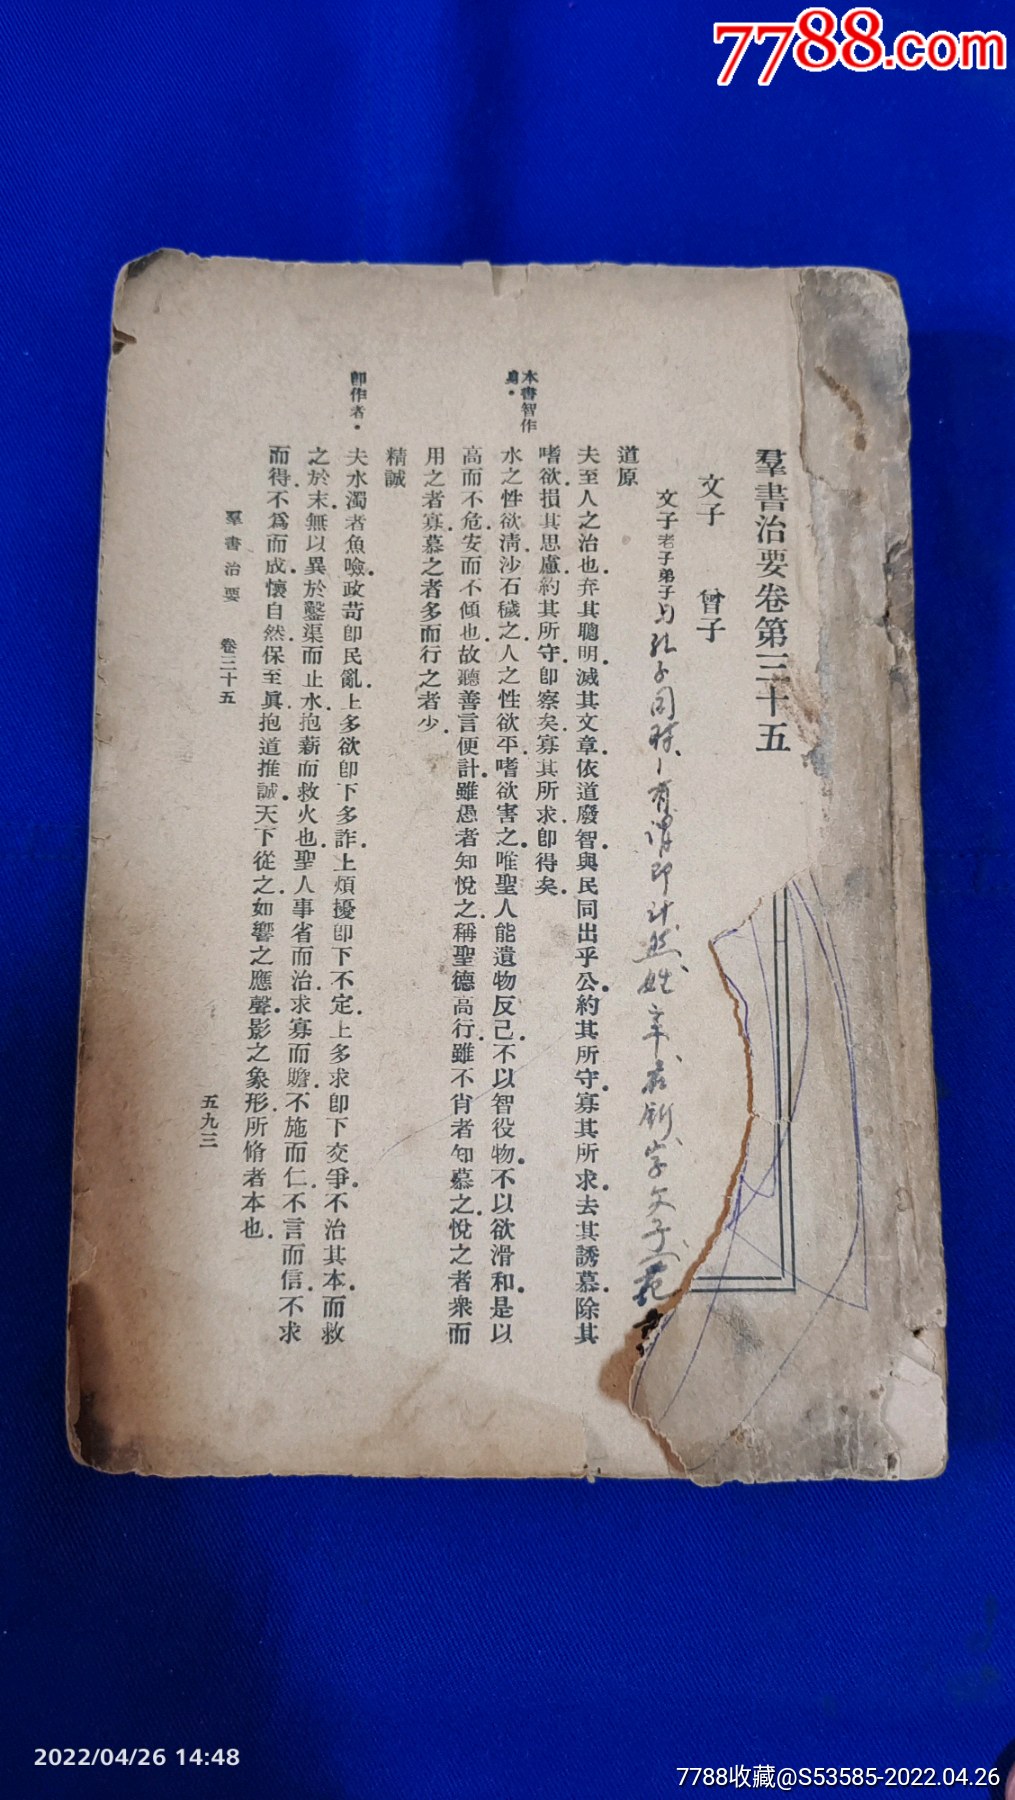 7788.com
羣書治要卷第三十五
文子　曾子
文子老子弟子与孔子同时、有谓即计然、姓辛
字文子
道原
夫至人之治也.弃其聰明.滅其文章.依道廢智.與民同出乎公.約其所守.寡其所求.去其誘慕.除其
嗜欲.損其思慮.約其所守.卽察矣.寡其所求.卽得矣.
本書智作
水之性欲清.沙石穢之.人之性欲平.嗜欲害之.唯聖人能遺物反己.不以智役物.不以欲滑和.是以
高而不危.安而不傾也.故聽善言便計.雖愚者知悅之.稱聖德高行.雖不肖者知慕之.悅之者衆.而
用之者寡.慕之者多.而行之者少.
精誠
卽作者.
夫水濁者魚噞.政苛卽民亂.上多欲卽下多詐.上煩擾卽下不定.上多求卽下交爭.不治其本.而救
之於末.無以異於鑿渠而止水.抱薪而救火也.聖人事省而治.求寡而贍.不施而仁.不言而信.不求
而得.不爲而成.懷自然.保至眞.抱道推誠.天下從之.如響之應聲.影之象形.所脩者本也.
羣書治要　卷三十五
五九三
2022/04/26 14:48
7788收藏@S53585-2022.04.26